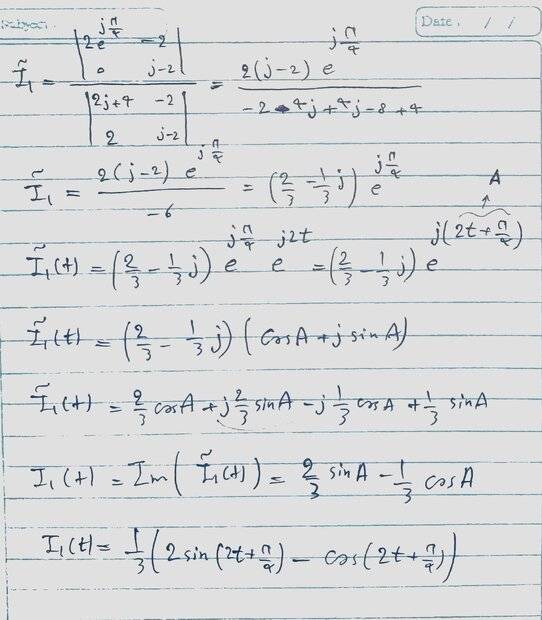 Subject: Date: / /
Ĩ₁ = |2e^(jπ/4) -2; 0 j-2| / |2j+4 -2; 2 j-2| = 2(j-2) e^(jπ/4) / (-2-4j+4j-8+4)
Ĩ₁ = 2(j-2) e^(jπ/4) / -6 = (2/3 - 1/3 j) e^(jπ/4)
A
Ĩ₁(t) = (2/3 - 1/3 j) e^(jπ/4) e^(j2t) = (2/3 - 1/3 j) e^(j(2t+π/4))
Ĩ₁(t) = (2/3 - 1/3 j) (cosA + j sinA)
Ĩ₁(t) = 2/3 cosA + j 2/3 sinA - j 1/3 cosA + 1/3 sinA
I₁(t) = Im(Ĩ₁(t)) = 2/3 sinA - 1/3 cosA
I₁(t) = 1/3 (2 sin(2t+π/4) - cos(2t+π/4))